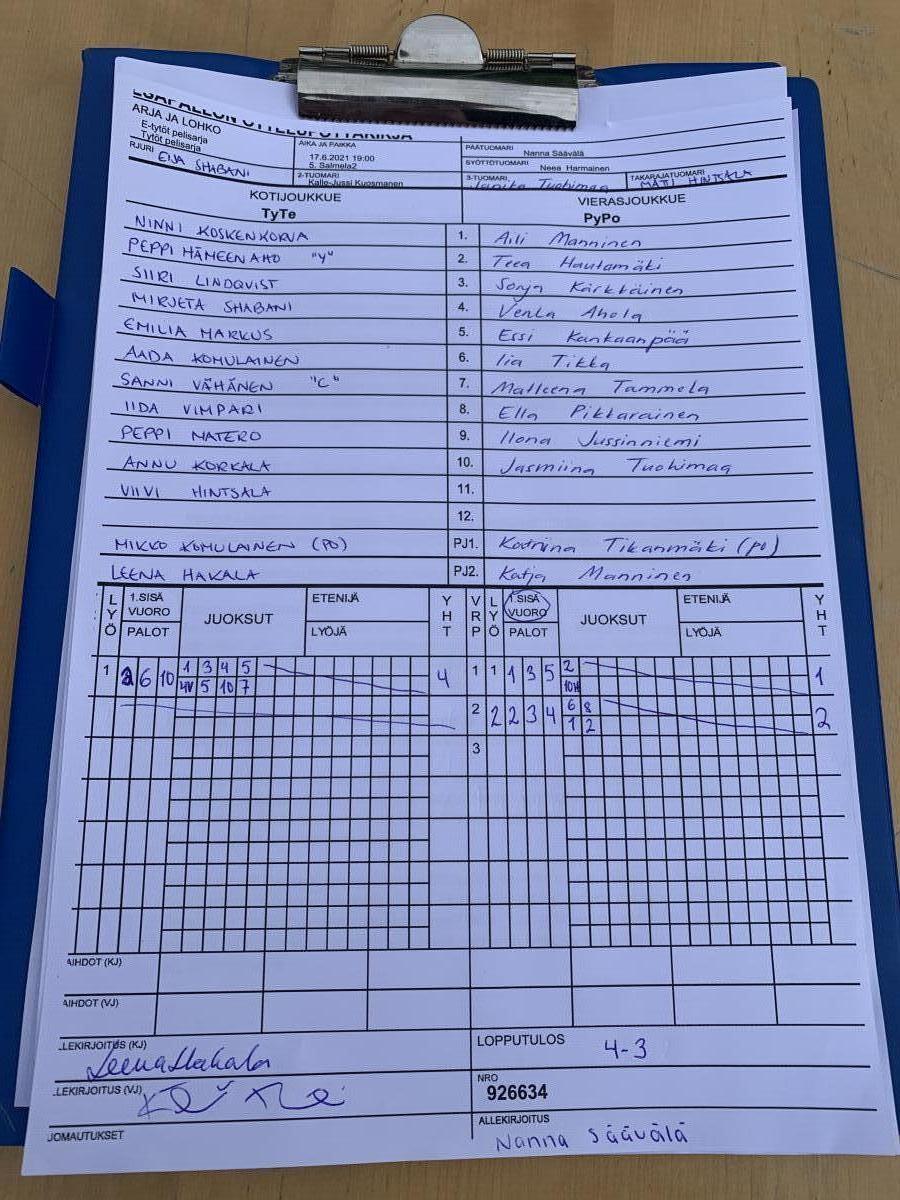 ARJA JA LOHKO
E-tytöt pelisarja
Tytöt pelisarja
AIKA JA PAIKKA
17.6.2021 19:00
5. Salmela2
PÄÄTUOMARI Nanna Säävälä
SYÖTTÖTUOMARI Neea Harmainen
RJURI EIJA SHABANI
2-TUOMARI
Kalle-Jussi Kuosmanen
3-TUOMARI Janika Tuohimaa
TAKARAJATUOMARI
MATI HINTSALA
KOTIJOUKKUE
TyTe
VIERASJOUKKUE
PyPo
NINNI KOSKENKORVA 1. Aili Manninen
PEPPI HÄMEENAHO "Y" 2. Teea Hautamäki
SIIRI LINDQVIST 3. Sonja Kärkkäinen
MIRJETA SHABANI 4. Venla Ahola
EMILIA MARKUS 5. Essi Kankaanpää
AADA KOMULAINEN 6. Iia Tikka
SANNI VÄHÄNEN "C" 7. Matleena Tammela
IIDA VIMPARI 8. Ella Pikkarainen
PEPPI MATERO 9. Ilona Jussinniemi
ANNU KORKALA 10. Jasmiina Tuohimaa
VIIVI HINTSALA 11.
12.
MIKKO KOMULAINEN (PO) PJ1. Katriina Tikanmäki (po)
LEENA HAKALA PJ2. Katja Manninen
LYÖ 1.SISÄ VUORO PALOT JUOKSUT ETENIJÄ LYÖJÄ YHT VRP LYÖ 1.SISÄ VUORO PALOT JUOKSUT ETENIJÄ LYÖJÄ YHT
1 2 6 10 1 3 4 5 4 1 1 1 3 5 2 1
4V 5 10 7 10H
2 2 2 3 4 6 8 2
1 2
3
AIHDOT (KJ)
AIHDOT (VJ)
LEKIRJOITUS (KJ) Leena Hakala
LOPPUTULOS 4-3
LEKIRJOITUS (VJ)
NRO
926634
JOMAUTUKSET
ALLEKIRJOITUS
Nanna Säävälä